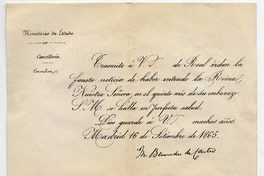 Ministerio de Estado
Cancillería
Circular
Trasmito á V. de Real orden la
fausta noticia de haber entrado la Reina,
Nuestra Señora, en el quinto mes de su embarazo.
S. M. se halla en perfecta salud.
Dios guarde á V. muchos años.
Madrid 16 de Setiembre de 1865.
M. Bermudez de Castro